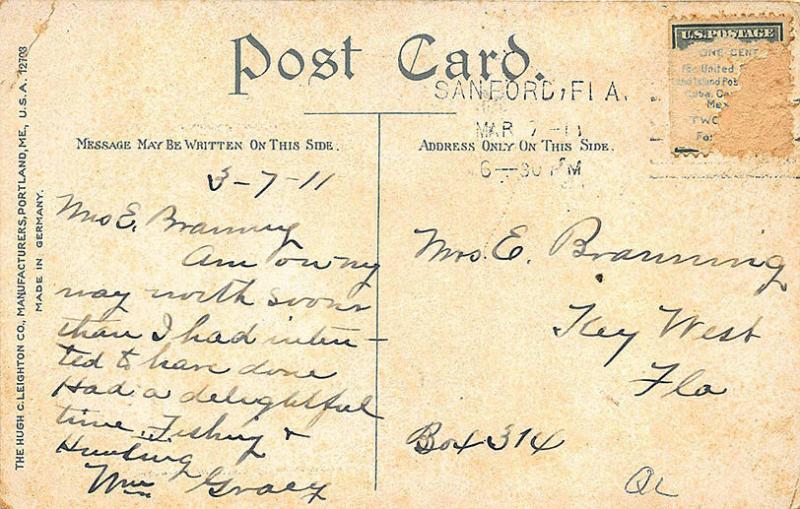 Post Card.
U.S. POSTAGE
ONE CENT
For United
and Island Pos
Cuba, Ca
Me
TWO
Fo
SANFORD, FLA.
MAR 7 - 11
6—30 PM
MESSAGE MAY BE WRITTEN ON THIS SIDE.
ADDRESS ONLY ON THIS SIDE.
THE HUGH C. LEIGHTON CO., MANUFACTURERS, PORTLAND, ME., U.S.A. 12703
MADE IN GERMANY.
3-7-11
Mrs E. Branning
Am on my
way north sooner
than I had inten-
ted to have done
Had a delightful
time, Fishing &
Hunting
Wm Gracy
Mrs. E. Branning
Key West
Fla
Box 314